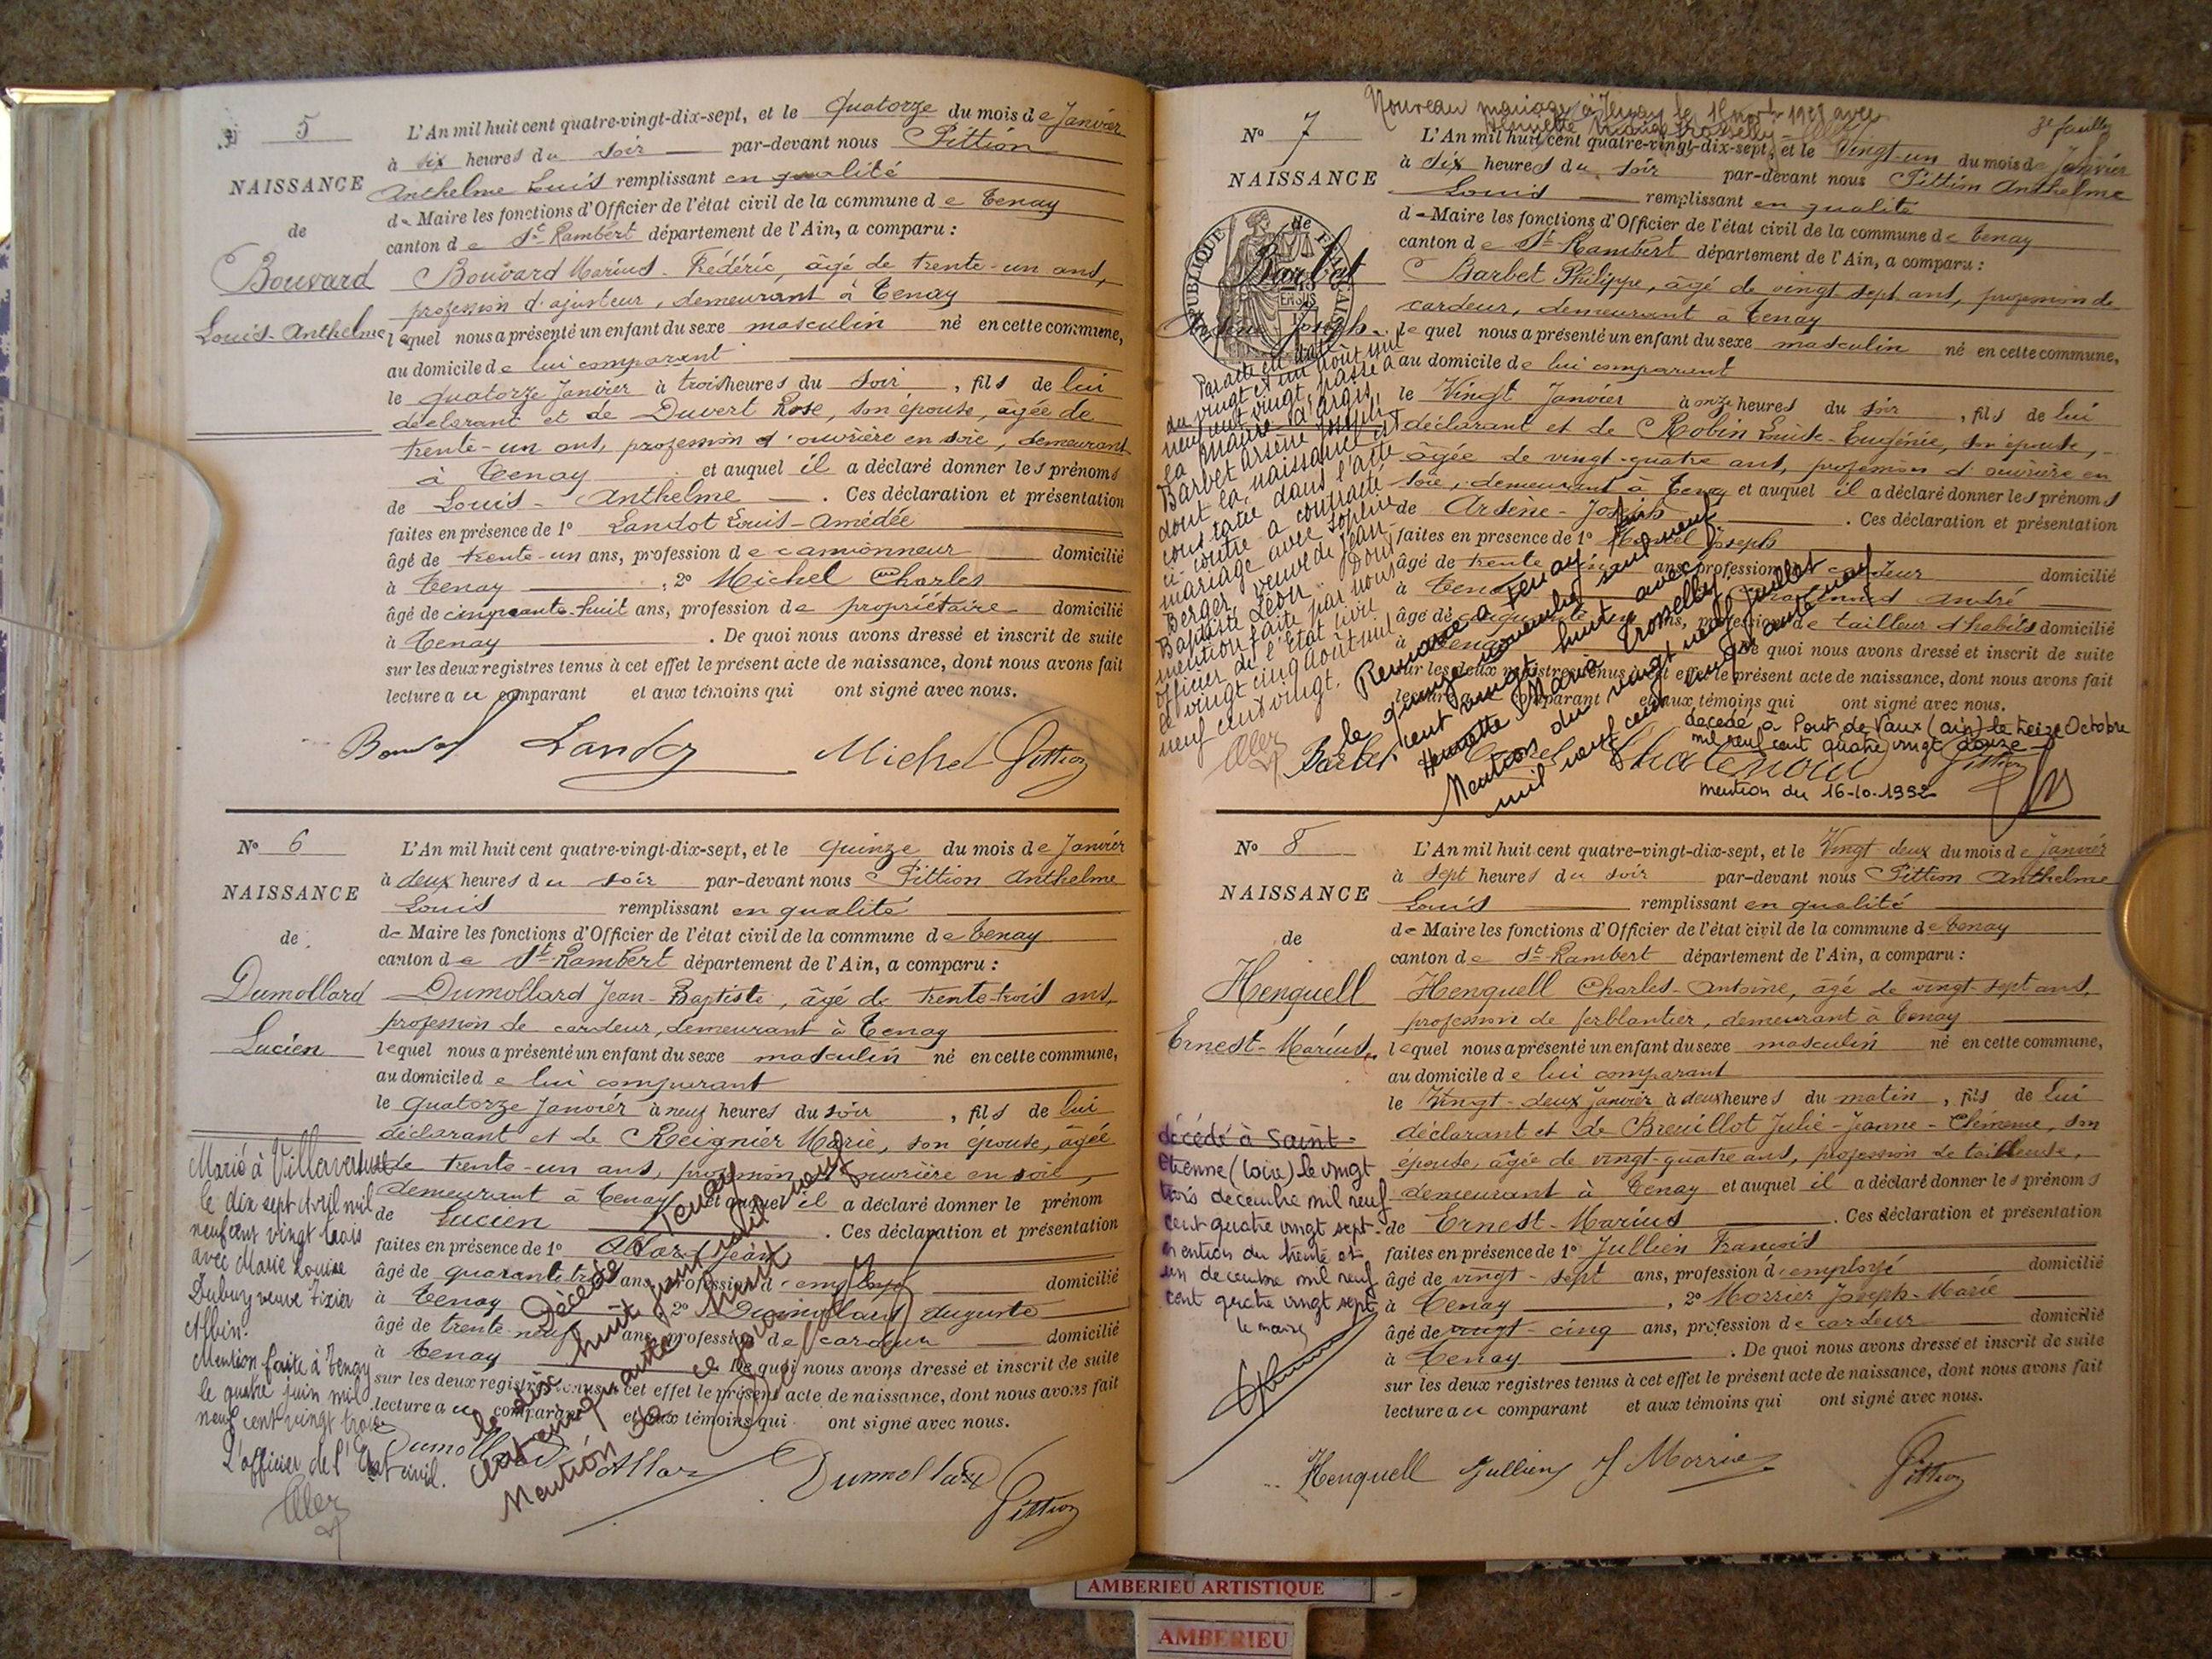 N° 5
NAISSANCE
de
Bouvard
Louis-Anthelme
L'An mil huit cent quatre-vingt-dix-sept, et le quatorze du mois de Janvier
à six heures du soir par-devant nous Pittion
Anthelme Louis remplissant en qualité
de Maire les fonctions d'Officier de l'état civil de la commune de Tenay
canton de St-Rambert département de l'Ain, a comparu :
Bouvard Marius-Frédéric, âgé de trente-un ans,
profession d'ajusteur, demeurant à Tenay
lequel nous a présenté un enfant du sexe masculin né en cette commune,
au domicile de lui comparant
le quatorze Janvier à trois heures du soir, fils de lui
déclarant et de Duvert Rose, son épouse, âgée de
trente-un ans, profession d'ouvrière en soie, demeurant
à Tenay et auquel il a déclaré donner les prénoms
de Louis-Anthelme. Ces déclaration et présentation
faites en présence de 1° Landot Louis-Amédée
âgé de trente-un ans, profession de camionneur domicilié
à Tenay, 2° Michel Charles
âgé de cinquante-huit ans, profession de propriétaire domicilié
à Tenay. De quoi nous avons dressé et inscrit de suite
sur les deux registres tenus à cet effet le présent acte de naissance, dont nous avons fait
lecture au comparant et aux témoins qui ont signé avec nous.
Landoz Michel Pittion
N° 6
NAISSANCE
de
Dumollard
Lucien
L'An mil huit cent quatre-vingt-dix-sept, et le quinze du mois de Janvier
à deux heures du soir par-devant nous Pittion Anthelme
Louis remplissant en qualité
de Maire les fonctions d'Officier de l'état civil de la commune de Tenay
canton de St-Rambert département de l'Ain, a comparu :
Dumollard Jean-Baptiste, âgé de trente-trois ans,
profession de cardeur, demeurant à Tenay
lequel nous a présenté un enfant du sexe masculin né en cette commune,
au domicile de lui comparant
le quatorze Janvier à neuf heures du soir, fils de lui
déclarant et de Reignier Marie, son épouse, âgée
de trente-un ans, profession d'ouvrière en soie,
demeurant à Tenay et auquel il a déclaré donner le prénom
de Lucien. Ces déclaration et présentation
faites en présence de 1° Allard Jean
âgé de quarante-trois ans, profession d'employé domicilié
à Tenay, 2° Dumollard Auguste
âgé de trente-neuf ans, profession de cardeur domicilié
à Tenay. De quoi nous avons dressé et inscrit de suite
sur les deux registres tenus à cet effet le présent acte de naissance, dont nous avons fait
lecture au comparant et aux témoins qui ont signé avec nous.
Dumollard Allard Dumollard Pittion
Marié à Villevertus
le dix sept Avril mil
neuf cent vingt trois
avec Marie Louise
Dubuy veuve Tixier
Albin.
Mention faite à Tenay
le quatre juin mil
neuf cent vingt trois
L'officier de l'Etat civil.
Décédé à Tenay
le dix huit juin mil neuf
cent cinquante huit
Mention de ce jour
N° 7
NAISSANCE
de
Barbet
Arsène Joseph
Nouveau mariage à Tenay le 15 nov. 1928 avec
Henriette Maria Trosselly
L'An mil huit cent quatre-vingt-dix-sept, et le vingt-un du mois de Janvier
à six heures du soir par-devant nous Pittion Anthelme
Louis remplissant en qualité
de Maire les fonctions d'Officier de l'état civil de la commune de Tenay
canton de St-Rambert département de l'Ain, a comparu :
Barbet Philippe, âgé de vingt sept ans, profession de
cardeur, demeurant à Tenay
lequel nous a présenté un enfant du sexe masculin né en cette commune,
au domicile de lui comparant
le Vingt Janvier à onze heures du soir, fils de lui
déclarant et de Robin Louise-Eugénie, son épouse,
âgée de vingt-quatre ans, profession d'ouvrière en
soie, demeurant à Tenay et auquel il a déclaré donner les prénoms
de Arsène-Joseph. Ces déclaration et présentation
faites en présence de 1° Joseph
âgé de trente ans, profession de cardeur domicilié
à Tenay, 2° Chatenoud André
âgé de ans, profession de tailleur d'habits domicilié
à Tenay. De quoi nous avons dressé et inscrit de suite
sur les deux registres tenus à cet effet le présent acte de naissance, dont nous avons fait
lecture au comparant et aux témoins qui ont signé avec nous.
Barbet Chatenoud Pittion
Par acte en date
du vingt et un août mil
neuf cent vingt, passé à
la mairie d'Argis
Barbet Arsène Joseph
dont la naissance est
constatée dans l'acte
ci-contre a contracté
mariage avec Sophie
Berger, veuve de Jean-
Baptiste Léon. Dont
mention faite par nous
officier de l'Etat civil
le vingt cinq août mil
neuf cent vingt.
Remarié à Tenay
le quinze novembre mil neuf
cent vingt huit avec
Henriette Maria Trosselly.
Mention du vingt neuf juillet
mil neuf cent cinquante neuf
décédé à Pont de Vaux (ain) le treize Octobre
mil neuf cent quatre vingt douze
mention du 16-10-1992
N° 8
NAISSANCE
de
Henquell
Ernest-Marius
L'An mil huit cent quatre-vingt-dix-sept, et le Vingt-deux du mois de Janvier
à sept heures du soir par-devant nous Pittion Anthelme
Louis remplissant en qualité
de Maire les fonctions d'Officier de l'état civil de la commune de Tenay
canton de St-Rambert département de l'Ain, a comparu :
Henquell Charles-Antoine, âgé de vingt-sept ans,
profession de ferblantier, demeurant à Tenay
lequel nous a présenté un enfant du sexe masculin né en cette commune,
au domicile de lui comparant
le Vingt-deux Janvier à deux heures du matin, fils de lui
déclarant et de Breuillot Julie-Jeanne-Clémence, son
épouse, âgée de vingt-quatre ans, profession de tailleuse,
demeurant à Tenay et auquel il a déclaré donner les prénoms
de Ernest-Marius. Ces déclaration et présentation
faites en présence de 1° Jullien François
âgé de vingt-sept ans, profession d'employé domicilié
à Tenay, 2° Morrier Joseph-Marie
âgé de vingt-cinq ans, profession de cardeur domicilié
à Tenay. De quoi nous avons dressé et inscrit de suite
sur les deux registres tenus à cet effet le présent acte de naissance, dont nous avons fait
lecture au comparant et aux témoins qui ont signé avec nous.
Henquell Jullien J Morrier Pittion
décédé à Saint-
Etienne (Loire) le vingt
trois decembre mil neuf
cent quatre vingt sept-
mention du trente et
un decembre mil neuf
cent quatre vingt sept
le maire
AMBERIEU ARTISTIQUE
AMBERIEU